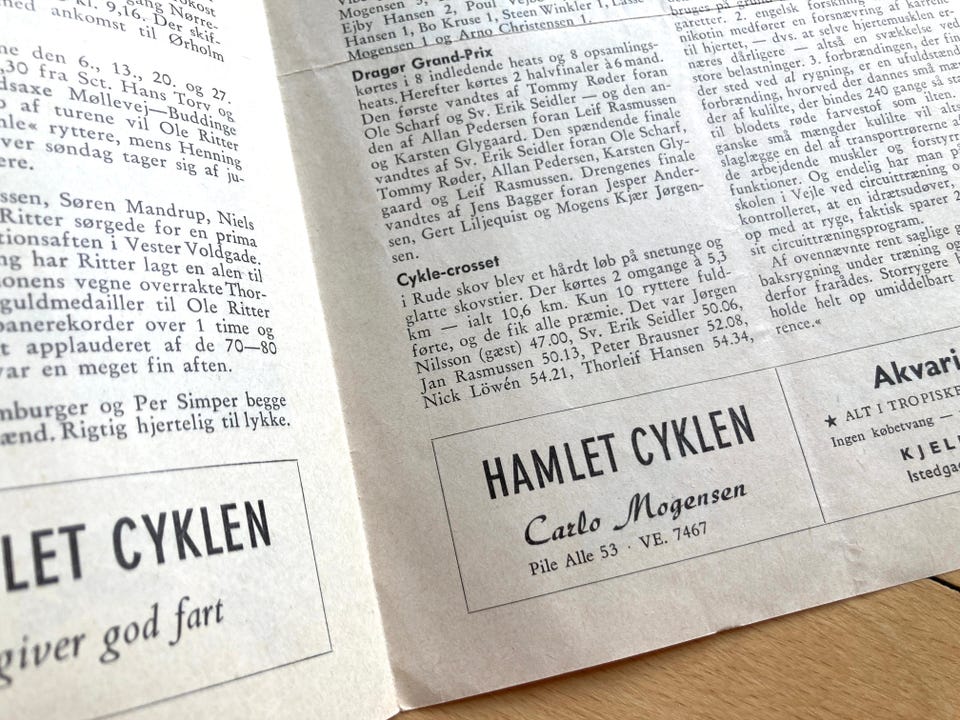 kost
gang Nørre.
kl. 9,16. Der skif-
med ankomst til Ørholm
ne den 6., 13., 20. og 27.
,30 fra Sct. Hans Torv og
dsaxe Møllevej—Buddinge
af turene vil Ole Ritter
le« ryttere, mens Henning
ver søndag tager sig af ju-
ere.
ssen, Søren Mandrup, Niels
Ritter sørgede for en prima
tionsaften i Vester Voldgade.
ng har Ritter lagt en alen til
onens vegne overrakte Thor-
guldmedailler til Ole Ritter
banerekorder over 1 time og
t applauderet af de 70—80
var en meget fin aften.
mburger og Per Simper begge
ænd. Rigtig hjertelig til lykke.
LET CYKLEN
giver god fart
Mogensen 3,
Ejby Hansen 2, Poul
Hansen 1, Bo Kruse 1, Steen Winkler 1, Lasse
Mogensen 1 og Arno Christensen 1.
Dragør Grand-Prix
kørtes i 8 indledende heats og 8 opsamlings-
heats. Herefter kørtes 2 halvfinaler à 6 mand.
Den første vandtes af Tommy Røder foran
Ole Scharf og Sv. Erik Seidler — og den an-
den af Allan Pedersen foran Leif Rasmussen
og Karsten Glygaard. Den spændende finale
vandtes af Sv. Erik Seidler foran Ole Scharf,
Tommy Røder, Allan Pedersen, Karsten Gly-
gaard og Leif Rasmussen. Drengenes finale
vandtes af Jens Bagger foran Jesper Ander-
sen, Gert Liljequist og Mogens Kjær Jørgen-
sen.
Cykle-crosset
i Rude skov blev et hårdt løb på snetunge og
glatte skovstier. Der kørtes 2 omgange à 5,3
km — ialt 10,6 km. Kun 10 ryttere fuld-
førte, og de fik alle præmie. Det var Jørgen
Nilsson (gæst) 47.00, Sv. Erik Seidler 50.06,
Jan Rasmussen 50.13, Peter Brausner 52.08,
Nick Löwén 54.21, Thorleif Hansen 54.34,
HAMLET CYKLEN
Carlo Mogensen
Pile Alle 53 · VE. 7467
bruges på
garetter. 2. engelsk forskning
nikotin medfører en forsnævring af karrene
til hjertet, — dvs. at selve hjertemusklen er-
næres dårligere — altså en svækkelse ved
store belastninger. 3. forbrændingen, der fin-
der sted ved al rygning, er en ufuldstænd
forbrænding, hvorved der dannes små mæ
der af kulilte, der bindes 240 gange så sta
til blodets røde farvestof som ilten.
ganske små mængder kulilte vil alts
slaglægge en del af transportrørerne af
de arbejdende muskler og forstyrr
funktioner. Og endelig har man på
skolen i Vejle ved circuittræning
kontrolleret, at en idrætsudøver,
op med at ryge, faktisk sparer 2
sit circuittræningsprogram.
Af ovennævnte rent saglige g
baksrygning under træning og
derfor frarådes. Storrygere b
holde helt op umiddelbart
rence.«
Akvari
★ ALT I TROPISKE
Ingen købetvang —
KJEL
Istedgad